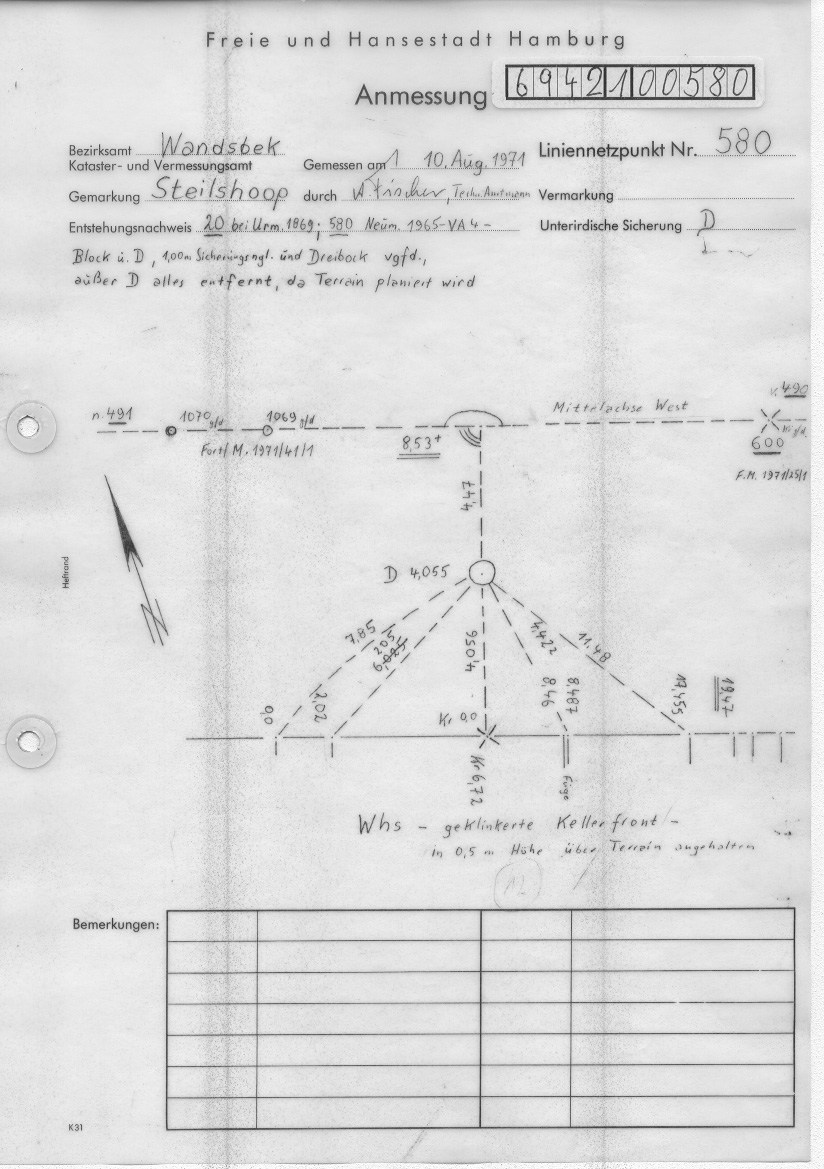 Freie und Hansestadt Hamburg
Anmessung 6942100580
Bezirksamt Wandsbek
Kataster- und Vermessungsamt
Gemessen am 10. Aug. 1971
Liniennetzpunkt Nr. 580
Gemarkung Steilshoop
durch Fischer, Techn. Amtmann
Vermarkung
Entstehungsnachweis 20 bei Urm. 1869; 580 Neum. 1965-VA 4-
Unterirdische Sicherung D
Block ü. D, 1,00m Sicherungsngl. und Dreibock vgfd.,
außer D alles entfernt, da Terrain planiert wird
n. 491
1070 g/d
1069 g/d
Mittelachse West
v. 490
8,53+
600
Fort/M. 1971/41/1
F.M. 1971/25/1
4,47
Heftrand
D 4,055
7,85
205
6,025
4,056
4,422
11,48
0,0
2,02
Kr 0,0
8,46
8,487
17,455
19,47
Kr 6,72
Fuge
Whs - geklinkerte Kellerfront -
in 0,5 m Höhe über Terrain angehalten
12
Bemerkungen:
K31